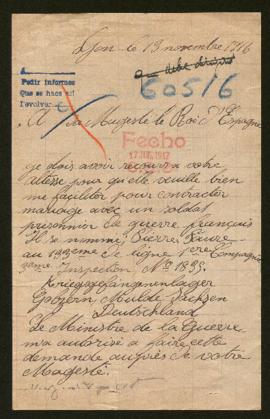 Lyon le 13 novembre 1916
Pedir informes
Que se haga así
Devolver
60516
A Sa Majesté le Roi d'Espagne
Fecho
17 1917
je dois avoir recours a votre
altesse pour qu'elle veuille bien
me faciliter pour contracter
mariage avec un soldat
prisonnier de guerre français
Il se nomme Pierre Faure
au de ligne 1ere Compagnie
Inspection No 1895
Kriegsgefangenenlager
Sachsen
Deutschland
Le Ministre de la Guerre
m'a autorisé a faire cette
demande auprès de votre
Magesté.